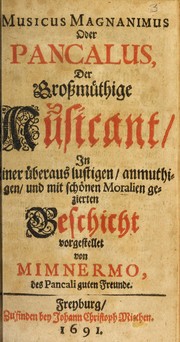 3
MUSICUS MAGNANIMUS
Oder
PANCALUS,
Der
Großmüthige
Musicant/
In
einer überaus lustigen/ anmuthi-
gen/ und mit schönen Moralien ge-
zierten
Geschicht
vorgestellet
von
MIMNERMO,
des Pancali guten Freunde.
Freyburg/
Zu finden bey Johann Christoph Miethen.
1691.